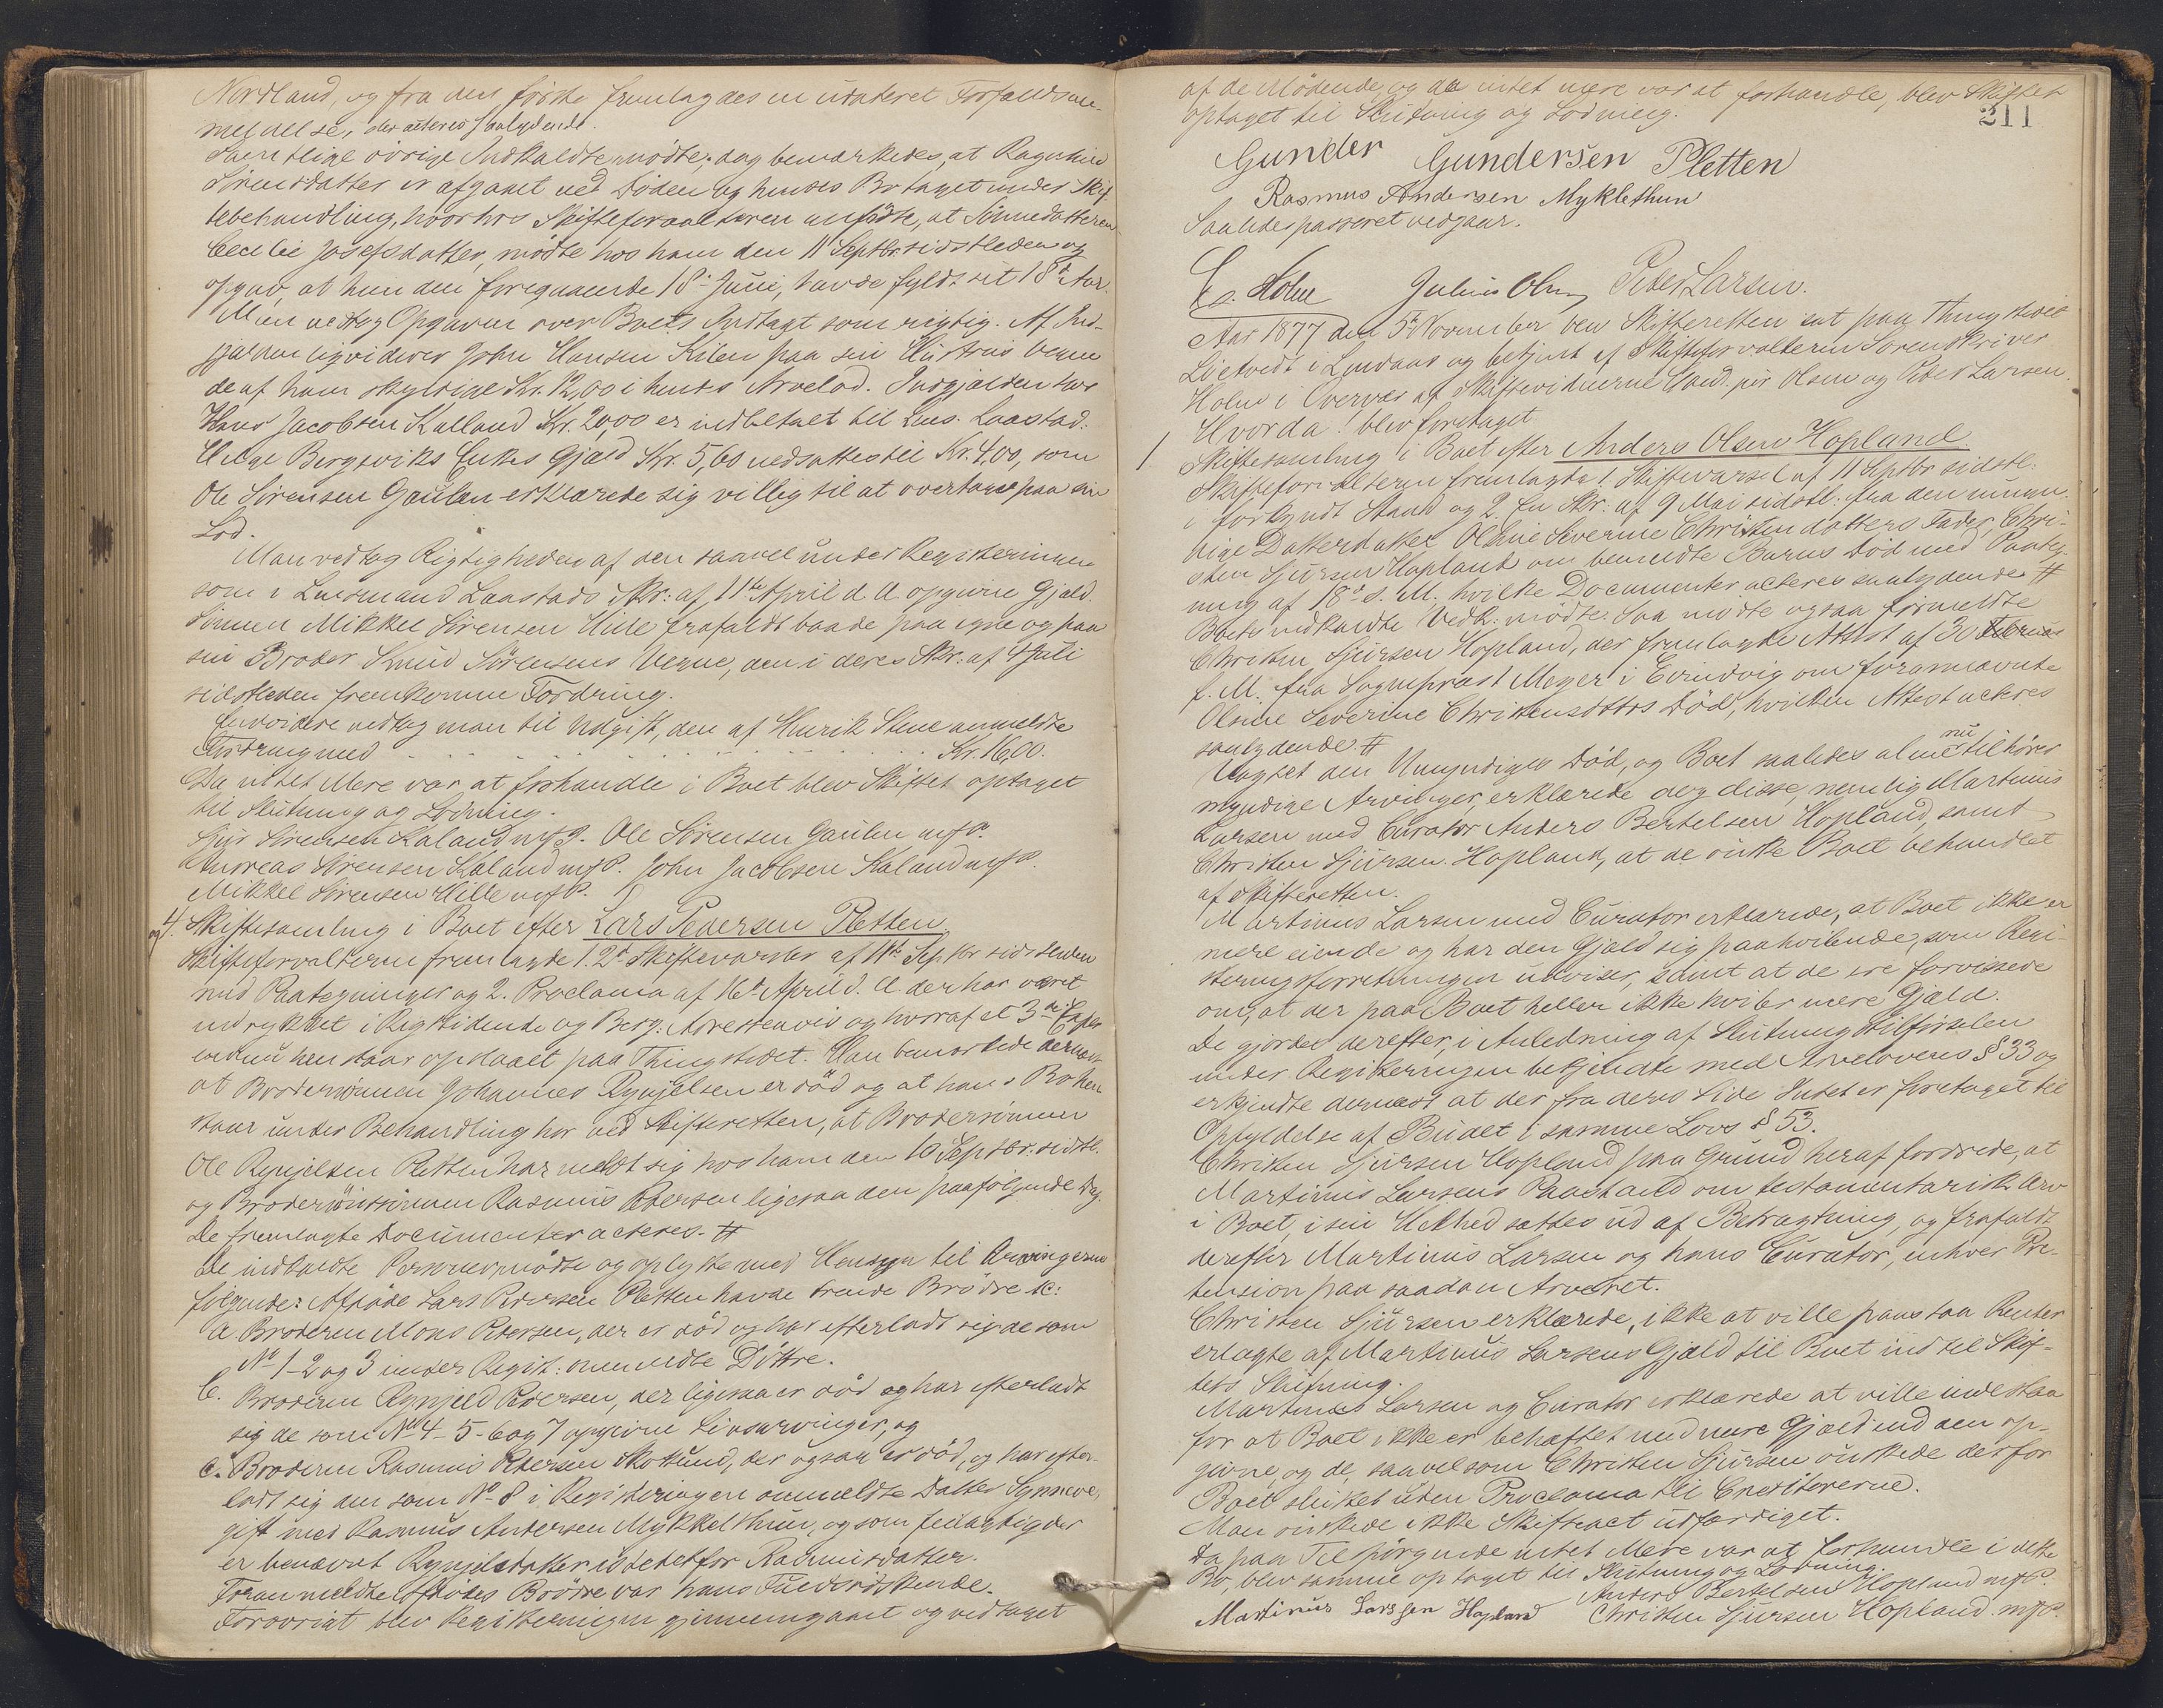 Nordland, og fra den første fremlagdes en udateret Forfaldsan-
meldelse, der acteres saalydende.
Samtlige øvrige Indkaldte mødte; dog bemærkedes, at Ragnhild
Sørensdatter er afgaaet ved Døden og hendes Bo taget under Skif-
tebehandling, hvorhos Skifteforvalteren anførte, at Sønnedatteren
Cecilie Josefsdatter, mødte hos ham den 11 Septbr. sidstleden og
opgav, at hun den foregaaende 18de Juni, havde fyldt sit 18de Aar.
Man vedtog Opgaven over Boets Indtægt som rigtig. Af Ind-
gjælden liqviderer John Hansen Kilen paa sin Hustrus Vegne
de af ham skyldige Kr. 12,00 i hendes Arvelod. Indgjælden hos
Hans Jacobsen Kalland Kr. 20,00 er indbetalt til Lens. Laastad.
Helge Bergsviks Enkes Gjæld Kr. 5,60 nedsattes til Kr. 4,00, som
Ole Sørensen Gaulen erklærede sig villig til at overtage paa sin
Lod.
Man vedtog Rigtigheden af den saavel under Registreringen
som i Lensmand Laastads Skr: af 11te April d. A. opgivne Gjæld.
Sønnen Mikkel Sørensen Hille frafaldt baade paa egne og paa
sin Broder Knud Sørensens Vegne, den i deres Skr: af 4 Juli
sidstleden fremkomne Fordring.
Endvidere vedtog man til Udgift, den af Henrik Stene anmeldte
Fordring med . . . . . . . . . . Kr. 16,00.
Da intet Mere var at forhandle i Boet blev Skiftet optaget
til Slutning og Lodning.
Sjur Sørensen Kaland m f P. Ole Sørensen Gaulen m f P.
Andreas Sørensen Kaland m f P. John Jacobsen Kaland m f P.
Mikkel Sørensen Hille m f P.
og 4. Skiftesamling i Boet efter Lars Pedersen Pletten.
Skifteforvalteren fremlagde 1. 2de Skiftevarsler af 11te Septbr sidstleden
med Paategninger og 2. Proclama af 16de April d. A. der har været
indrykket i Rigstidende og Berg. Adressecontoirs og hvoraf et 3die Expl.
endnu henstaar opslaaet paa Thingstedet. Han bemærkede dernæst
at Brodersønnen Johannes Rynjelsen er død og at hans Bo hen
staar under Behandling her ved Skifteretten, at Brodersønnen
Ole Rynjelsen Pletten har meldt sig hos ham den 10 Septbr. sidstl.
og Brodersønssønnen Rasmus Pedersen ligesaa den paafølgende Dag.
De fremlagte Documenter acteres. #
De indkaldte Personer mødte og oplyste med Hensyn til Arvingerne
følgende: Afdøde Lars Pedersen Pletten havde trende Brødre &c:
a. Broderen Mons Pedersen, der er død og har efterladt sig de som
No 1-2 og 3 under Regist: anmeldte Døttre.
b. Broderen Rynjeld Pedersen, der ligesaa er død og har efterladt
sig de som No 4-5-6 og 7 opgivne Livsarvinger, og
c. Broderen Rasmus Pedersen Skotund, der ogsaa er død, og har efter-
ladt sig den som No 8 i Registreringen anmeldte Datter Synneve,
gift med Rasmus Andersen Mykkelthun, og som feilagtig der
er benævnt Rynjelsdatter istedetfor Rasmusdatter.
Foranmeldte Afdødes Brødre var hans Fuldsødskende.
Forøvrigt blev Registreringen gjennemgaaet og vedtaget
211
af de Mødende, og da intet mere var at forhandle, blev Skiftet
optaget til Slutning og Lodning.
Gunder Gundersen Pletten
Rasmus Andersen Myklethun
Saaledes passeret vedgaar.
Holm Julius Olsen Peder Larsen.
Aar 1877 den 5te November blev Skifteretten sat paa Thingstedet
Lietvedt i Lindaas og betjent af Skifteforvalteren Sorenskriver
Holm i Overvær af Skiftevidnerne Cand. jur. Olsen og Peder Larsen.
Hvorda! blev foretaget
1. Skiftesamling i Boet efter Anders Olsen Hopland.
Skifteforvalteren fremlagde 1. Skiftevarsel af 11 Septbr sidstl.
i forkyndt Stand og 2. En Skr: af 9 Mai sidstl. fra den umyn-
dige Datterdatter Oline Severine Christensdatters Fader, Chri-
sten Sjursen Hopland om bemeldte Barns Død med Paateg-
ning af 18de s. M. hvilke Documenter acteres saalydende #
Boets indkaldte Vedk. mødte. Saa mødte ogsaa førmeldte
Christen Sjursen Hopland, der fremlagde Attest af 30
f. M. fra Sognepræst Meyer i Evindvig om forannævnte
Olsine Severine Christensdatters Død, hvilken Attest acteres
saalydende #
Uagtet den Umyndiges Død, og Boet saaledes alene nu tilhører
myndige Arvinger, erklærede dog disse, nemlig Martinus
Larsen med Curator Anders Bertelsen Hopland, samt
Christen Sjursen Hopland, at de ønske Boet behandlet
af Skifteretten.
Martinus Larsen med Curator erklærede, at Boet ikke er
mere eiende og har den Gjæld sig paahvilende, som Regi-
streringsforretningen udviser, samt at de ere forvissede
om, at der paa Boet heller ikke hviler mere Gjæld.
De gjordes derefter, i Anledning af Slutningstilførselen
under Registreringen bekjendte med Arvelovens § 33 og
erkjendte dernæst at der fra deres Side Intet er foretaget til
Opfyldelse af Budet i samme Lovs § 53.
Christen Sjursen Hopland paa Grund heraf fordrede, at
Martinus Larsens Paastand om testamentarisk Arv
i Boet, i sin Helhed sattes ud af Betragtning, og frafaldt
derefter Martinus Larsen og hans Curator, enhver Præ-
tension paa saadan Arveret.
Christen Sjursen erklærede, ikke at ville paastaa Renter
erlagte af Martinus Larsens Gjæld til Boet indtil Skif-
tets Slutning.
Martinus Larsen og Curator erklærede at ville indestaa
for at Boet ikke er behæftet med mere Gjæld end den op-
givne, og de, saavelsom Christen Sjursen ønskede derfor
Boet sluttet uden Proclama til Creditorerne.
Man ønskede ikke Skifteact udfærdiget.
Da paa Tilspørgende intet Mere var at forhandle i dette
Bo, blev samme optaget til Slutning og Lodning.
Anders Bertelsen Hopland m f P.
Martinus Larssen Hopland Christen Sjursen Hopland. m f P.